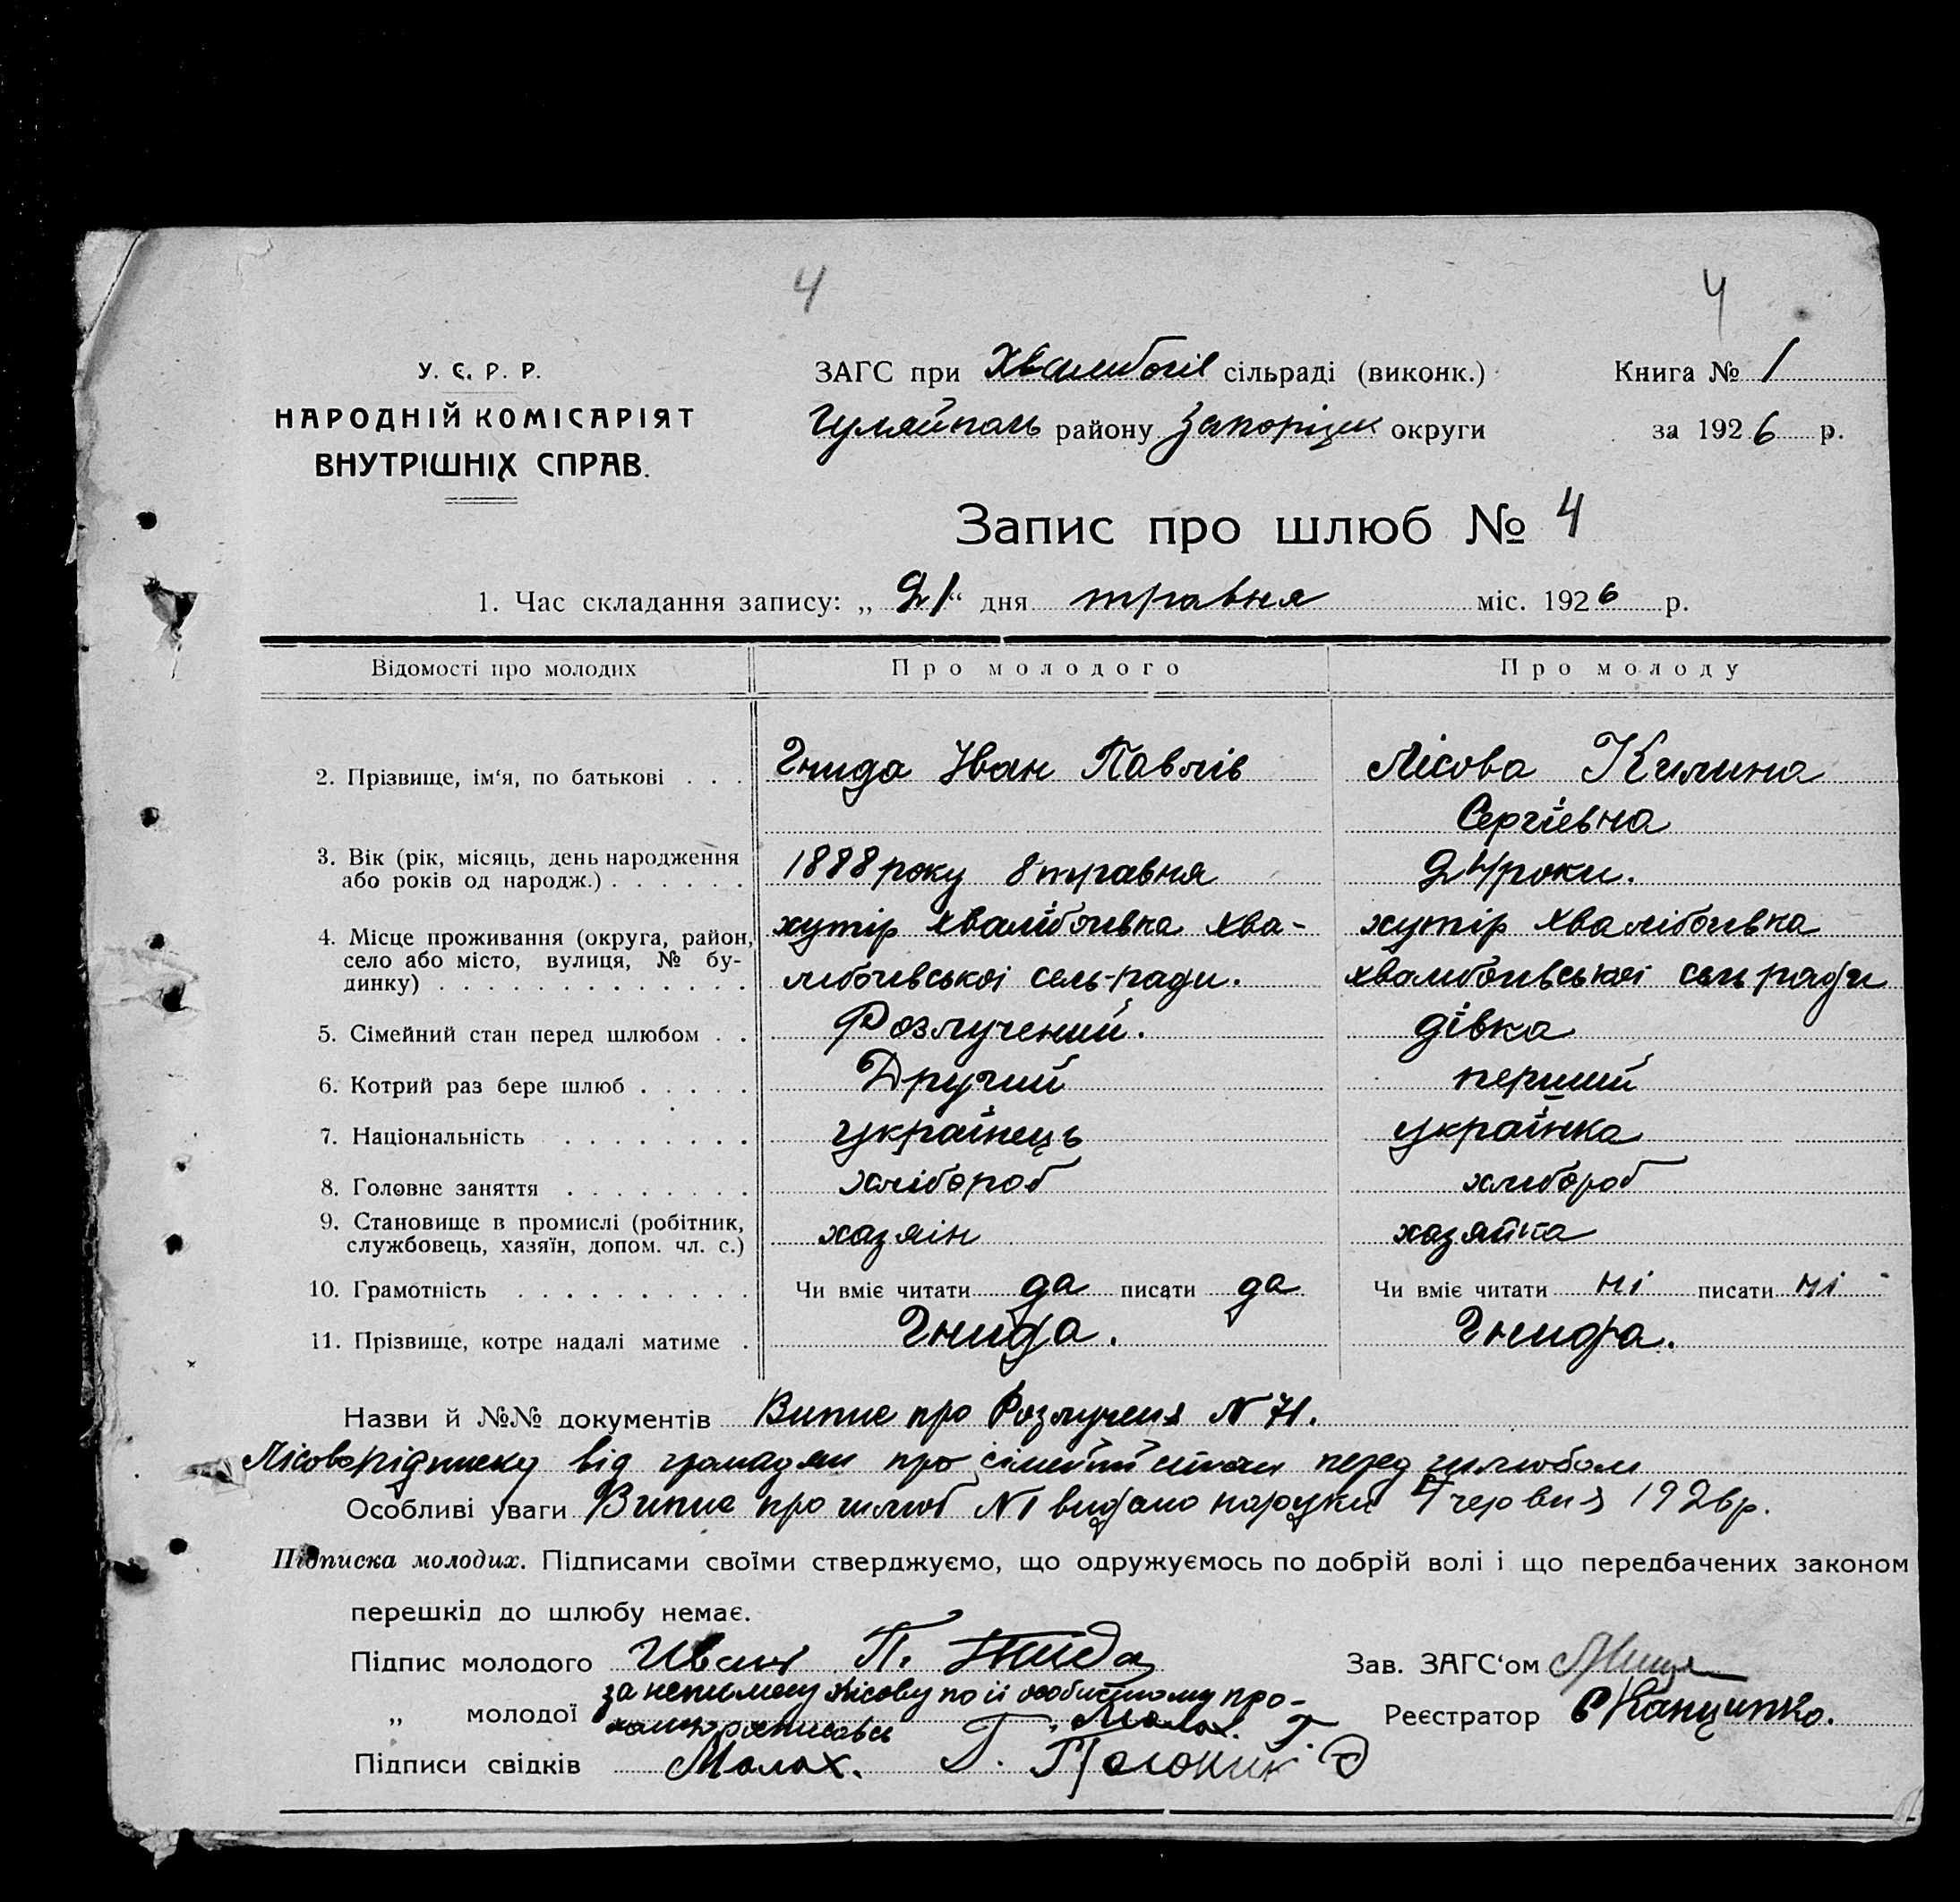 4 4
У. С. Р. Р.
НАРОДНІЙ КОМІСАРІЯТ
ВНУТРІШНІХ СПРАВ.
ЗАГС при Хвалибогів сільраді (виконк.)
Гуляйполь району Запоріцк округи
Книга № 1
за 1926 р.
Запис про шлюб № 4
1. Час складання запису: „ 21 “ дня травня міс. 1926 р.
Відомості про молодих Про молодого Про молоду
2. Прізвище, ім‘я, по батькові . . . Гнида Іван Павлів Лісова Килина
Сергіевна
3. Вік (рік, місяць, день народження
або років од народж.) . . . . . . 1888 року 8 травня 24 роки.
4. Місце проживання (округа, район, хутір Хвалібогивка Хва- хутір Хвалібогивка
село або місто, вулиця, № бу-
динку) . . . . . . . . . . . . . либогивськоі сель-ради. Хвалибогивськоі сель ради
5. Сімейний стан перед шлюбом . . Розлучений. дівка
6. Котрий раз бере шлюб . . . . . Другий перший
7. Національність . . . . . . . . українець українка
8. Головне заняття . . . . . . . . хлібороб хлибороб
9. Становище в промислі (робітник,
службовець, хазяїн, допом. чл. с.) хазяін хазяйка
10. Грамотність . . . . . . . . . . Чи вміє читати да писати да Чи вміє читати ні писати ні
11. Прізвище, котре надалі матиме . Гнида. Гнида.
Назви й №№ документів Випис про Розлученя N 71.
Лісова підписку від громадян про сімейний стан перед шлюбом
Особливі уваги Випис про шлюб N 1 видано на руки 7 червня 1926 р.
Підписка молодих. Підписами своїми стверджуємо, що одружуємось по добрій волі і що передбачених законом
перешкід до шлюбу немає.
Підпис молодого Иван П. Гнида
Зав. ЗАГС‘ом
„ молодої за неписмену Лісову по іі особистому про-
ханню росписавсь Г. Малах.
Реєстратор Капципко.
Підписи свідків Малах. Г.